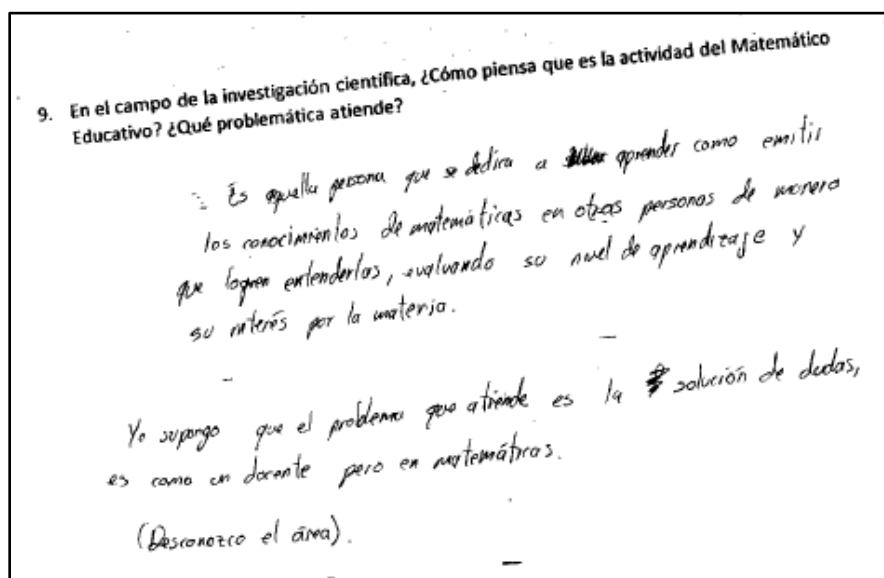 9. En el campo de la investigación científica, ¿Cómo piensa que es la actividad del Matemático
Educativo? ¿Qué problemática atiende?
Es aquella persona que se dedica a aprender como emitir
los conocimientos de matemáticas en otras personas de manera
que logren entenderlas, evaluando su nivel de aprendizaje y
su interés por la materia.
Yo supongo que el problema que atiende es la solución de dudas,
es como un docente pero en matemáticas.
(Desconozco el área).